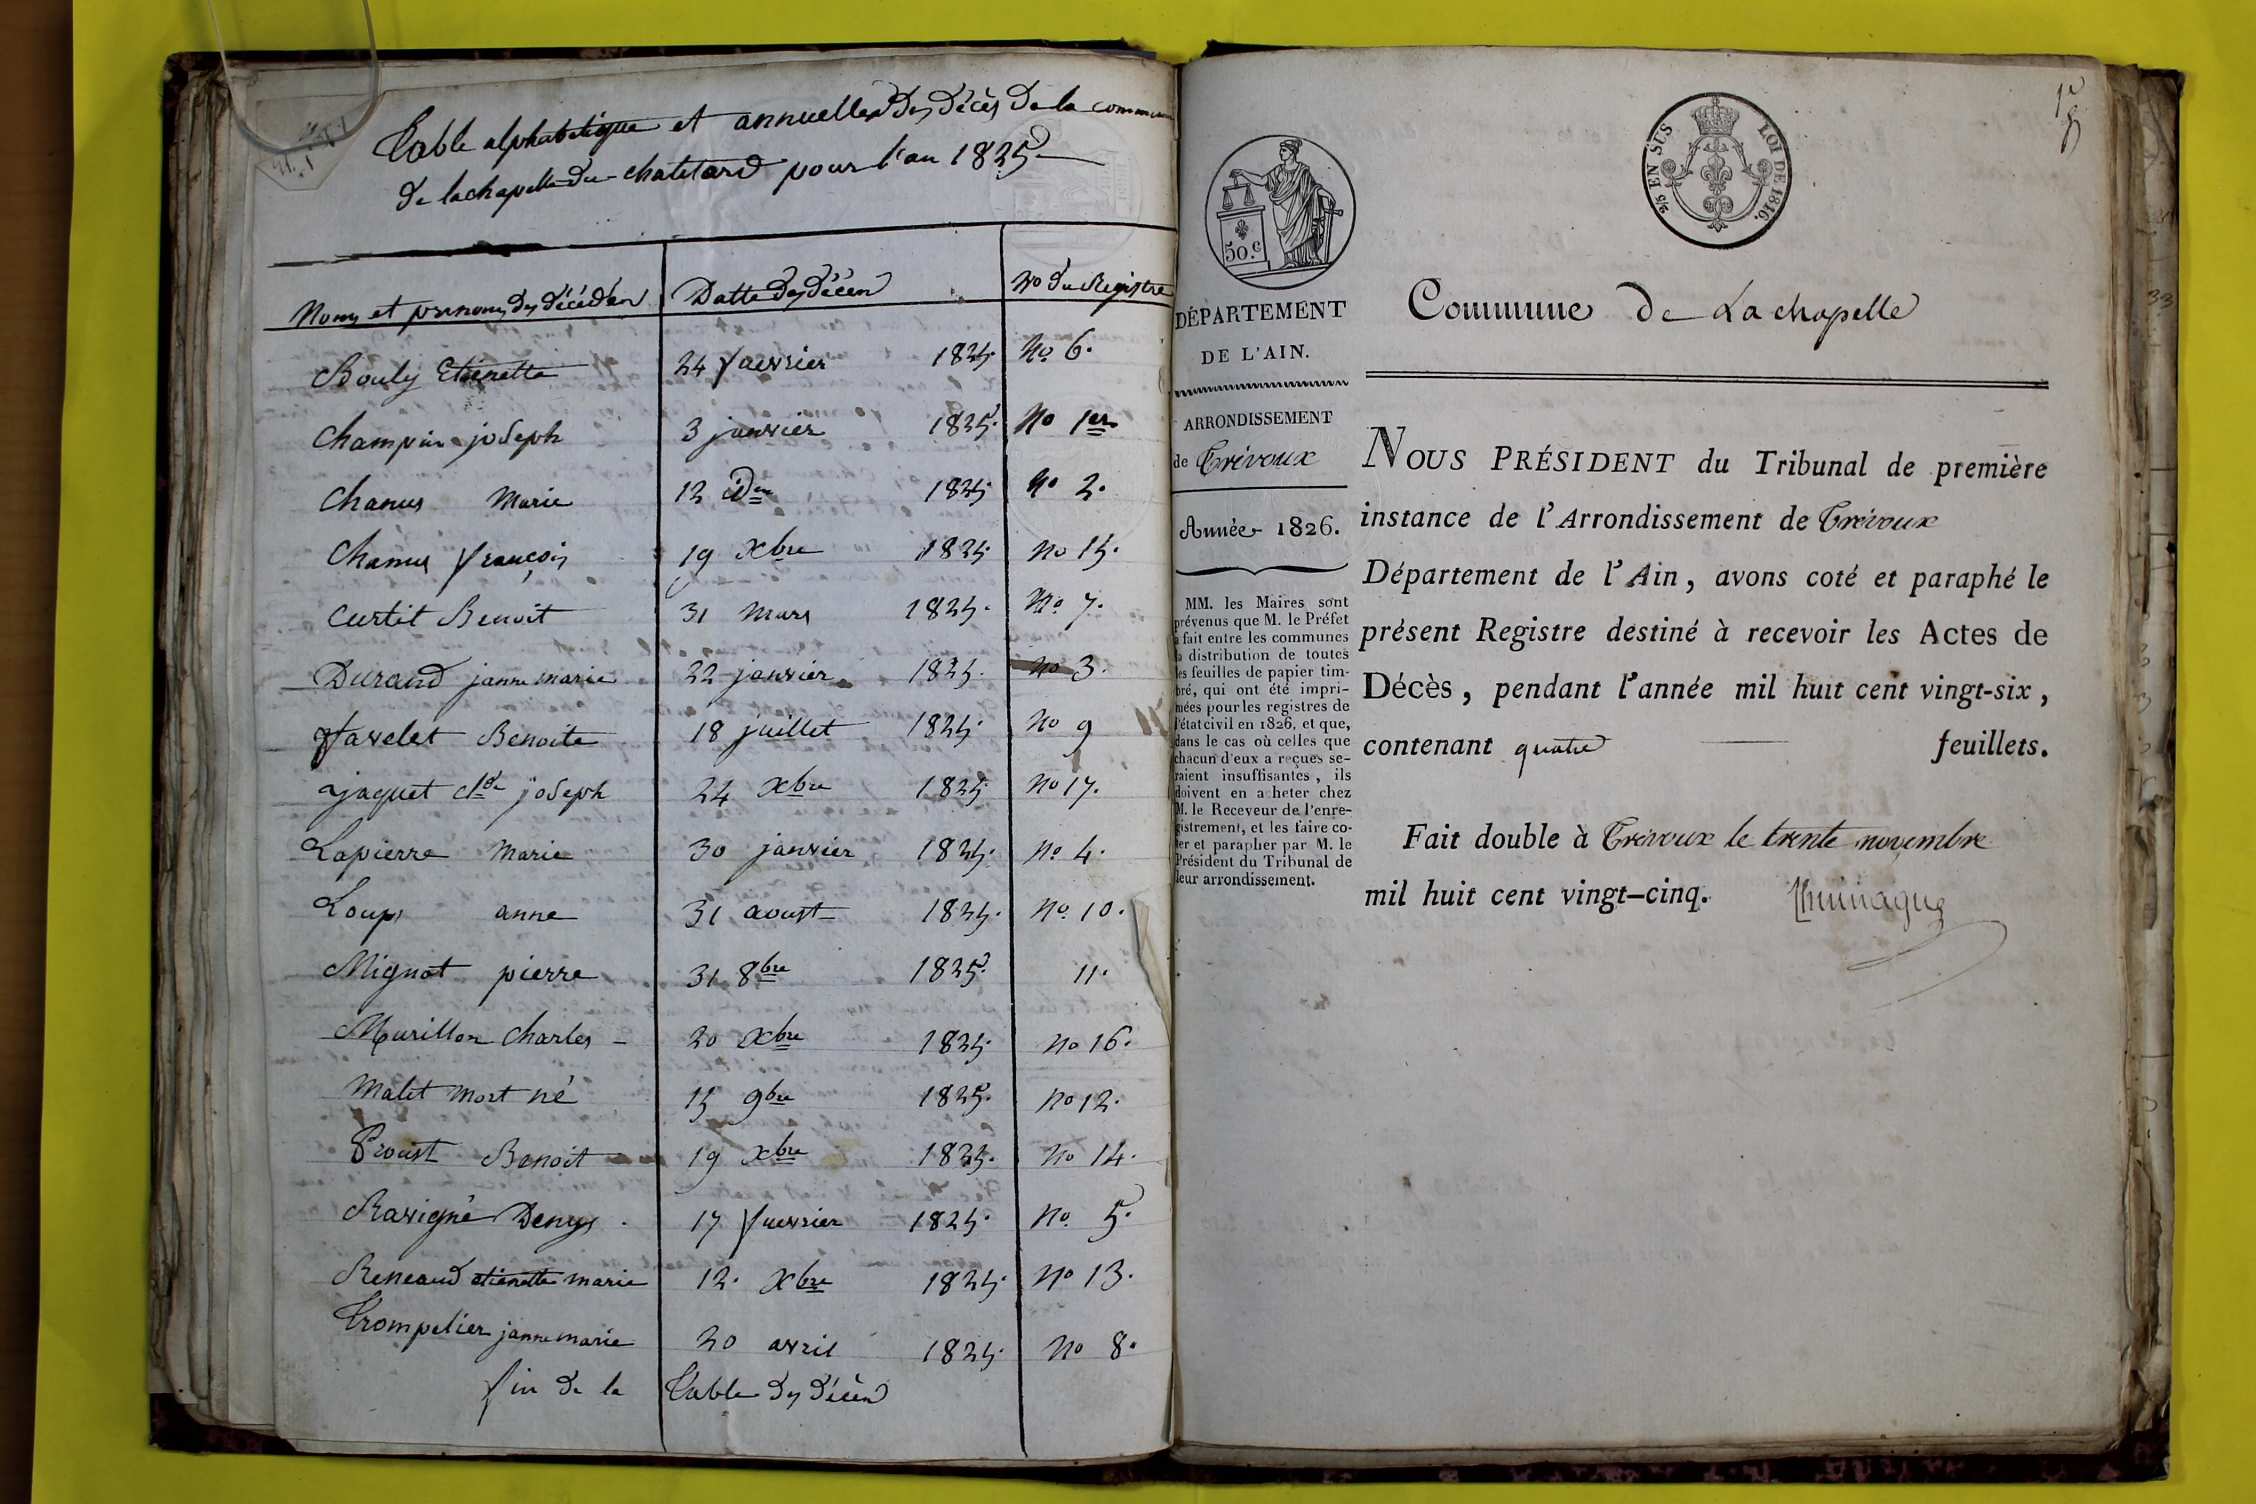 Table alphabetique et annuelle des décès de la commune
de lachapelle du chatelard pour l'an 1825
Noms et prenoms des décédés | Datte des décès | No du Registre
Bouly Etienette | 24 fevrier 1825. | No 6.
Champin joseph | 3 janvier 1825. | No 1er
Chanus Marie | 12 idem 1825. | No 2.
Chanus françois | 19 Xbre 1825. | No 15.
Curtit Benoit | 31 Mars 1825. | No 7.
Durand janne marie | 22 janvier 1825. | No 3.
Favelet Benoite | 18 juillet 1825. | No 9
jaquet Cde joseph | 24 Xbre 1825. | No 17.
Lapierre Marie | 30 janvier 1825. | No 4.
Loups anne | 31 aoust 1825. | No 10.
Mignot pierre | 31 8bre 1825. | 11.
Murillon Charles - | 20 Xbre 1825. | No 16.
Malet mort né | 15 9bre 1825. | No 12.
Proust Benoit | 19 Xbre 1825. | No 14.
Ravigné Denys. | 17 fevrier 1825. | No 5.
Reneaud etienette marie | 12. Xbre 1825. | No 13.
Trompelier janne marie | 20 avril 1825. | No 8.
fin de la Table des décès
50. C
2/5 EN SUS
LOI DE 1816.
DÉPARTEMENT
DE L'AIN.
ARRONDISSEMENT
de Trévoux
Année 1826.
MM. les Maires sont
prévenus que M. le Préfet
a fait entre les communes
la distribution de toutes
les feuilles de papier tim-
bré, qui ont été impri-
mées pour les registres de
l'état civil en 1826, et que,
dans le cas où celles que
chacun d'eux a reçues se-
raient insuffisantes, ils
doivent en acheter chez
M. le Receveur de l'enre-
gistrement, et les faire co-
ter et parapher par M. le
Président du Tribunal de
leur arrondissement.
Commune de La chapelle
NOUS PRÉSIDENT du Tribunal de première
instance de l'Arrondissement de Trévoux
Département de l'Ain, avons coté et paraphé le
présent Registre destiné à recevoir les Actes de
Décès, pendant l'année mil huit cent vingt-six,
contenant quatre feuillets.
Fait double à Trévoux le trente novembre
mil huit cent vingt-cinq.